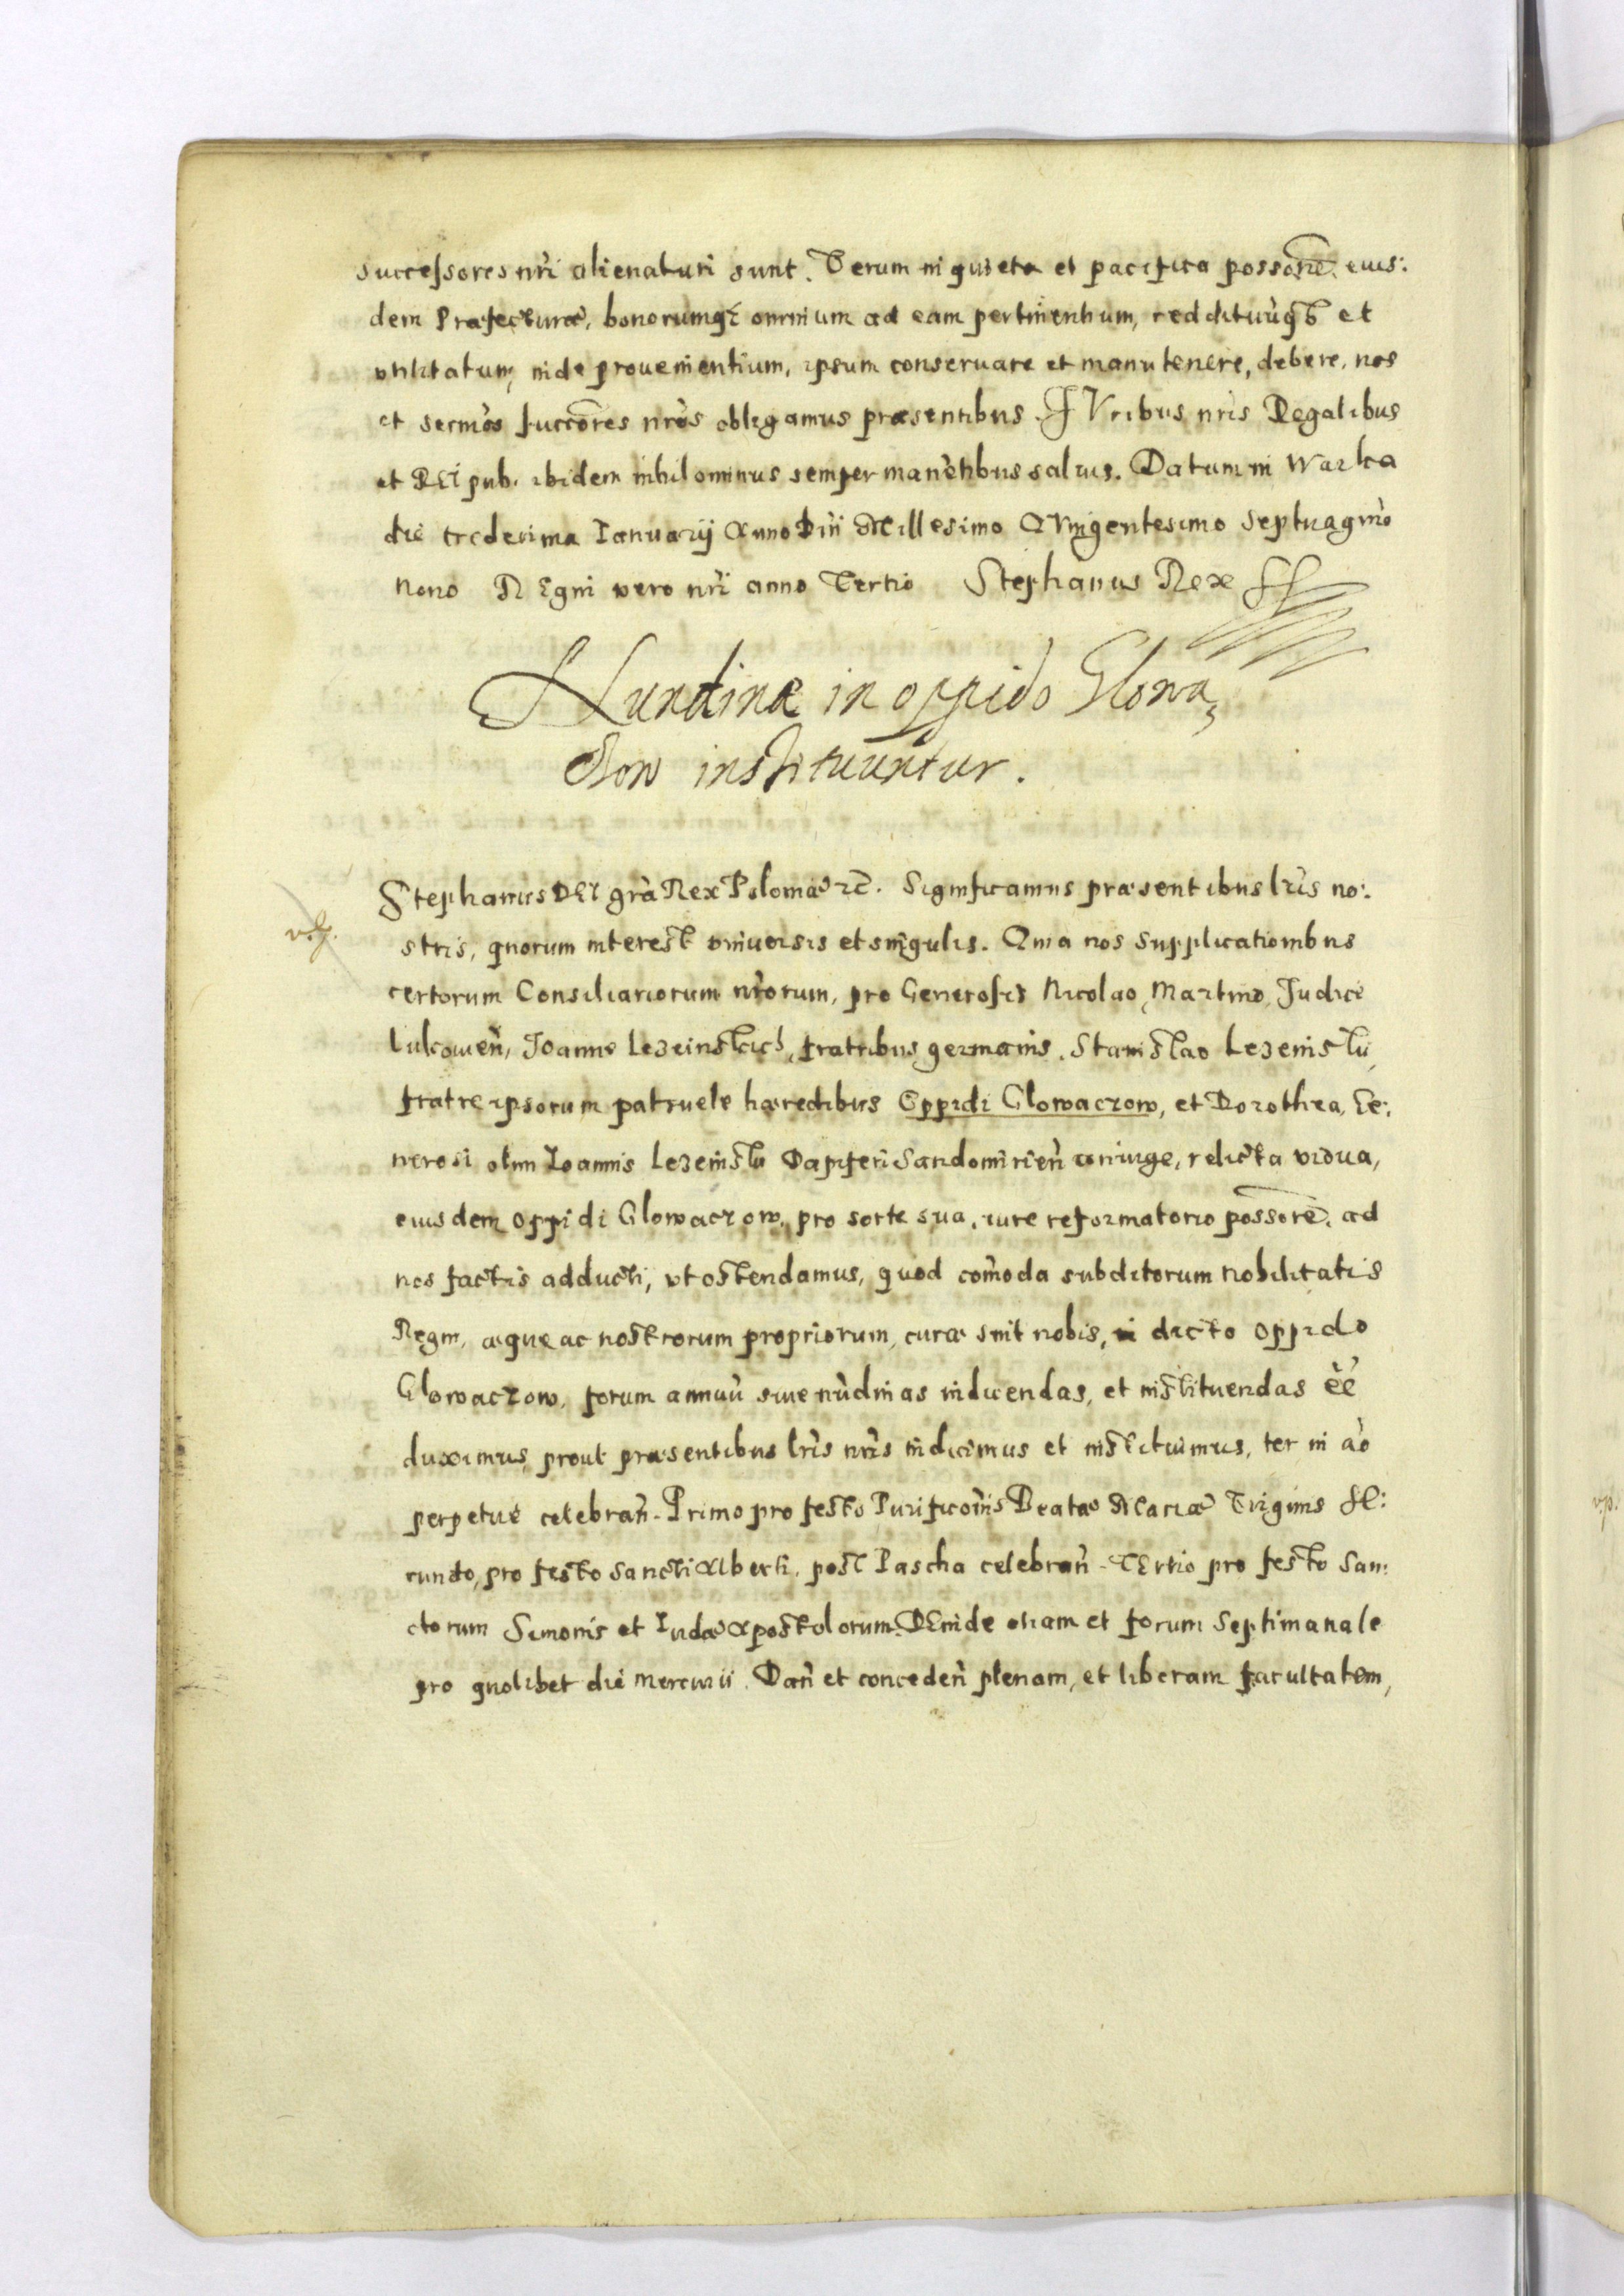 successores nr̃i alienaturi sunt. Verum in quieta et pacifica possone eius:
dem Præfecturæ, bonorumq́ omnium ad eam pertinentium, reddituùq́ et
vtilitatum, inde prouenientium, ipsum conseruare et manutenere, debere, nos
et sermos succores nros obligamus præsentibus. IVribus nris Regalibus
et REI pub. ibidem nihilominus semper manentibus saluis. Datum in Warka
die tredecima Ianuarij Anno Dni Millesimo QVingentesimo Septuagmo
nono REgni vero nri anno Tertio Stephanus Rex
Nundinæ in oppido Glowa,
czow instituuntur.
Stephanus DEI gra Rex Poloniæ zc. Significamus præsentibus lris no:
stris, quorum interest vniuersis et singulis. Quia nos supplicationibus
certorum Consiliariorum nrorum, pro Generosis Nicolao, Martino, Judice
Lukowien, Joanne Lezeinskich, fratribus germanis, Stanislao Lezenisku,
fratre ipsorum patruele hæredibus Oppidi Glowaczow, et Dorothea, Ge:
nerosi olim Ioannis Lezenisku Dapiferi Sandomirien coniuge, relicta vidua,
eiusdem oppidi Glowaczow, pro sorte sua, iure reformatorio possore, ad
nos factis adducti, vt ostendamus, quod comoda subditorum nobilitatis
Regni, æque ac nostrorum propriorum, curæ sint nobis, in dicto oppido
Glowaczow, forum annuu siue nudinas inducendas, et instituendas ee
duximus, prout præsentibus lris nris indicimus et instituimus, ter in ao
perpetue celebran. Primo pro festo Purificonis Beatæ Mariæ Virginis SE:
cundo, pro festo Sancti Alberti, post Pascha celebran. TErtio pro festo San:
ctorum Simonis et Iudæ Apostolorum. DEinde etiam et forum septimanale
pro quolibet die Mercurii. Dan et conceden plenam, et liberam facultatem,